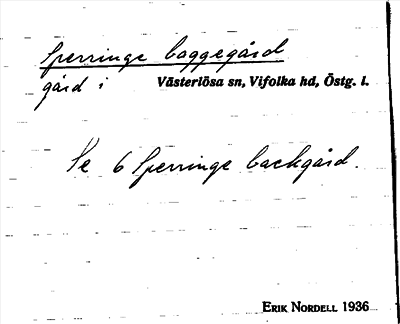 Sperringe baggegård
gård i Västerlösa sn, Vifolka hd, Östg. l.
Se 6 Sperringe backgård.
ERIK NORDELL 1936